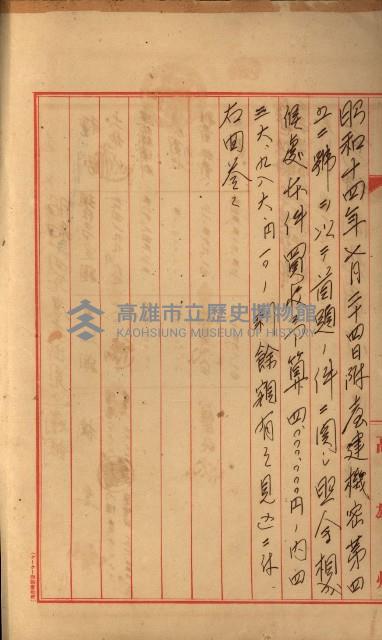 昭和十四年七月二十四日附高建機密第四
五二號ヲ以テ首題ノ件ニ関シ照会相成
候處本件買收予算四〇、〇〇〇円ノ内四
三六、九八六円一〇ノ剰餘額有之見込ニ付
右回答ス
高雄州
高雄市立歷史博物館
KAOHSIUNG MUSEUM OF HISTORY